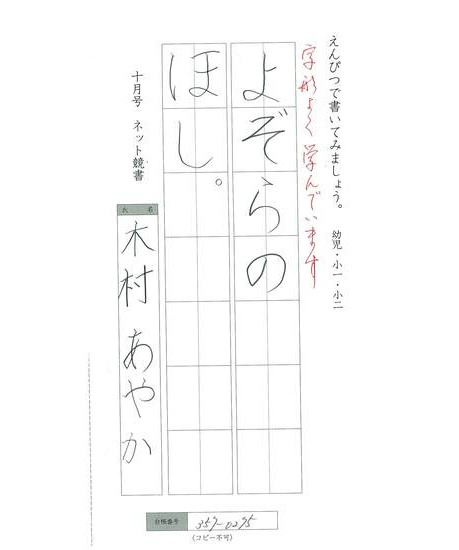 えんぴつで書いてみましょう。 幼児・小一・小二
字形よく学んでいます
よぞらの
ほし。
十月号 ネット競書
氏 名
木村 あやか
台帳番号 357-0295
(コピー不可)